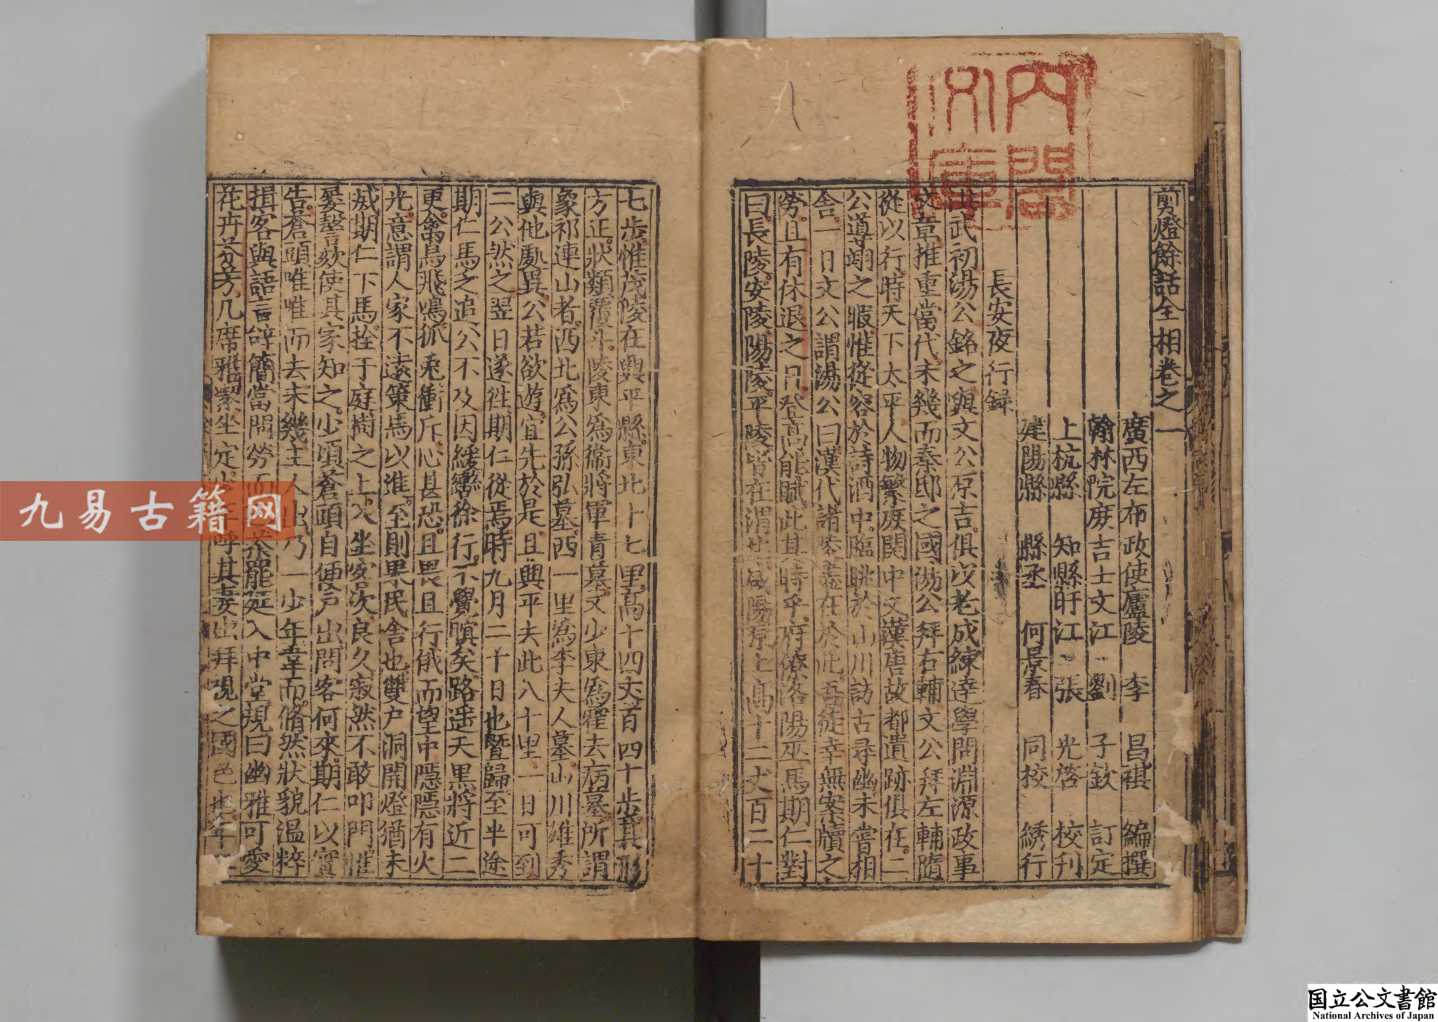 剪燈餘話全相卷之一
廣西左布政使廬陵 李 昌祺 編撰
翰林院庻吉士文江 劉 子欽 訂定
上杭縣 知縣盱江 張 光啓 校刊
建陽縣 縣丞 何景春 同校 綉行
長安夜行録
武初湯公銘之與文公原吉俱以老成練達學問淵源政事
文章推重當代未幾而奉 之國湯公拜右輔文公拜左輔隨
從以行時天下太平人物繁庻関中又漢唐故都遺跡俱在二
公導翊之暇惟從容於詩酒中臨眺於山川訪古尋幽未嘗相
舎一日文公謂湯公曰漢代諸陵盡在於此吾徒幸無案牘之
勞且有休退之日登高能賦此其時乎府僚洛陽巫馬期仁對
曰長陵安陵陽陵平陵皆在渭 咸陽原上高十二丈百二十
七歩惟茂陵在興平縣東北十七里高十四丈百四十歩其形
方正狀類覆斗陵東為衛將軍青墓又少東為霍去病墓所謂
象祁連山者西北為公孫弘墓西一里為李夫人墓山川雄秀
與他處異公若欲遊宜先於是且興平去此八十里一日可到
二公然之翌日遂徃期仁從焉時九月二十日也暨歸至半途
期仁馬乏追公不及因緩轡徐行不覺暝矣路遥天黒將近二
更禽鳥飛鳴狐兎衝斥心甚恐且畏且行俄而望中隱隱有火
光意謂人家不遠策馬以進至則果民舎也雙户洞開燈猶未
㓕期仁下馬拴于庭樹之上入坐客次良久寂然不敢叩門惟
屢謦欬使其家知之少頃蒼頭自便户出問客何來期仁以實
告蒼頭唯唯而去未幾主人出乃一少年韋 而翛然狀貌温粹
揖客與語言辭簡當問勞而 茶罷延入中堂規 幽雅可愛
花卉芬芳几席雅潔坐定 呼其妻出拜視之國色也年
内閣文庫
九易古籍网
国立公文書館
National Archives of Japan